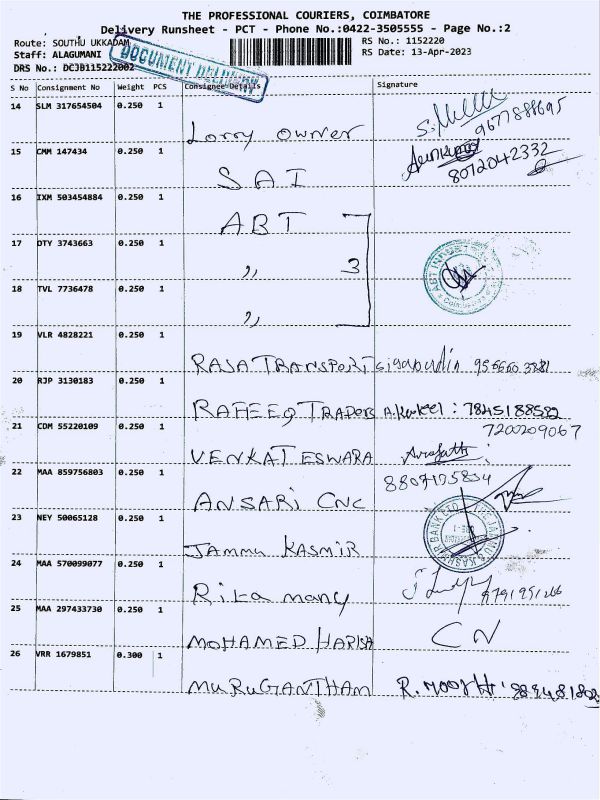 THE PROFESSIONAL COURIERS, COIMBATORE
Delivery Runsheet - PCT - Phone No.:0422-3505555 - Page No.:2
Route: SOUTHU UKKADAM
RS No.: 1152220
Staff: ALAGUMANI
RS Date: 13-Apr-2023
DRS No.: DCJB115222002
DOCUMENT DELIVERY
S No Consignment No Weight PCS Consignee Details Signature
14 SLM 317654504 0.250 1
Lorry Owner 9677888695
15 CMM 147434 0.250 1
SAI 8072042332
16 IXM 503454884 0.250 1
ABT
17 DTY 3743663 0.250 1
,, 3
18 TVL 7736478 0.250 1
,,
19 VLR 4828221 0.250 1
RAJA TRANSPORT
20 RJP 3130183 0.250 1
RAFEEQ TRADERS : 7845188582
21 CDM 55220109 0.250 1
7200209067
VENKATESWARA
22 MAA 859756803 0.250 1
8807175834
ANSARI CNC
23 NEY 50065128 0.250 1
JAMMU KASMIR
24 MAA 570099077 0.250 1
Rita many
25 MAA 297433730 0.250 1
MOHAMED HARISA CN
26 VRR 1679851 0.300 1
MURUGANTHAM